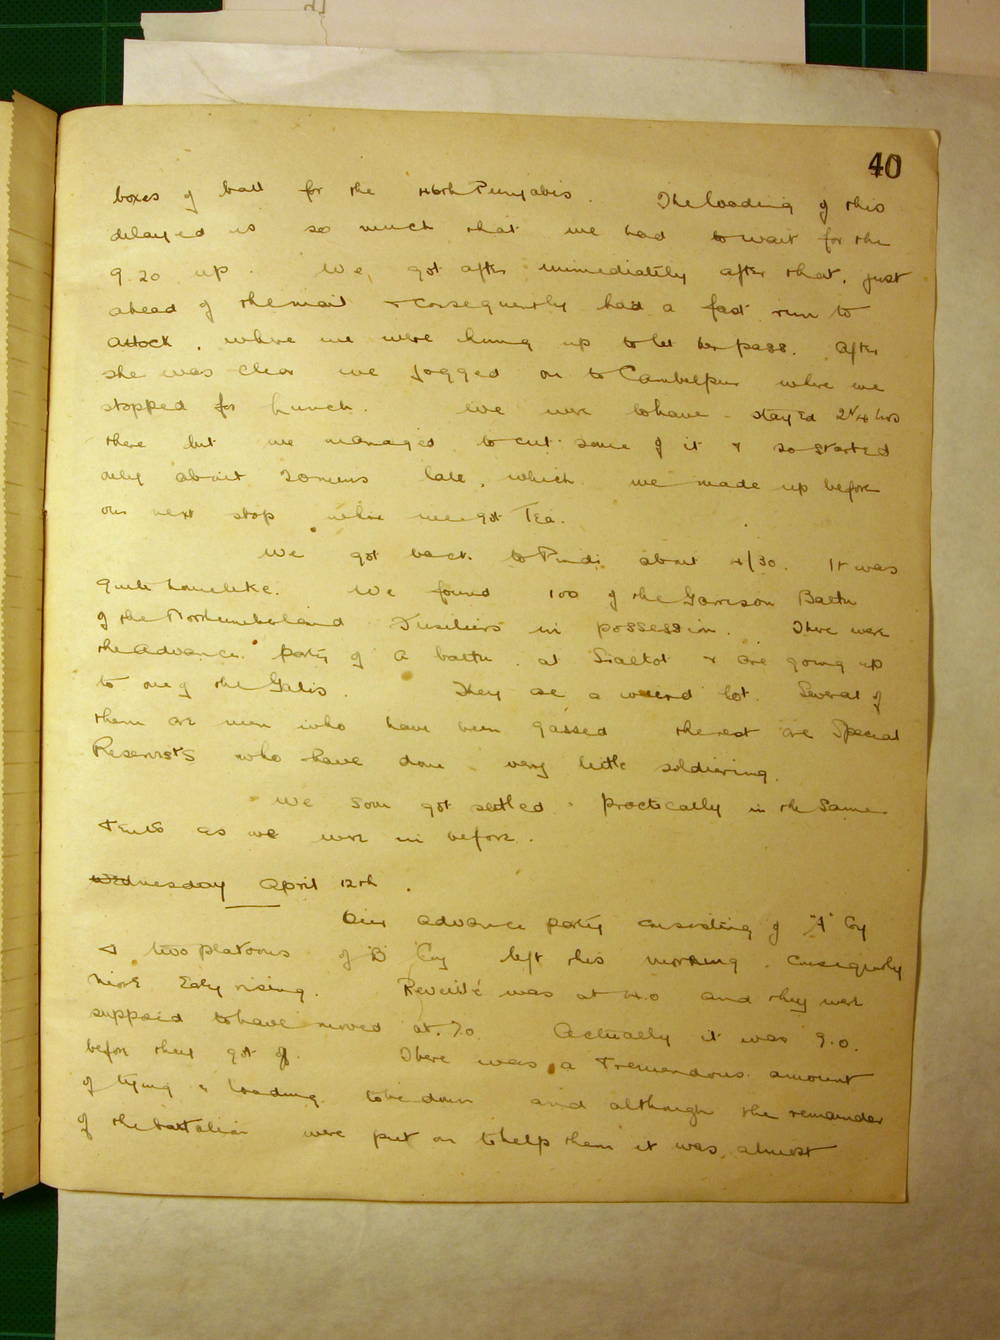 40
boxes of ball for the 46th Punjabis. The loading of this
delayed us so much that we had to wait for the
9.20 up. We got after immediately after that, just
ahead of the mail & consequently had a fast run to
Attock, where we were hung up to let her pass. After
she was clear we jogged on to Cambelpur where we
stopped for Lunch. We were to have stayed 2 1/4 hrs
there but we managed to cut some of it & so started
only about 20 mins late, which we made up before
our next stop where we got Tea.
We got back to Pindi about 4/30. It was
quite homelike. We found 100 of the Garrison Battn
of the Northumberland Fusiliers in possession. There were
the advance party of a battn. at Sialkot & are going up
to one of the Galis. They are a weird lot. Several of
them are men who have been gassed the rest are Special
Reservists who have done very little soldiering.
We soon got settled practically in the same
tents as we were in before.
Wednesday April 12th.
Our advance party consisting of "A" Coy
& two platoons of B Coy left this morning. Consequently
more Early rising. Reveillé was at 4.0 and they were
supposed to have moved at 7.0. Actually it was 9.0.
before they got off. There was a tremendous amount
of tying & loading to be done and although the remainder
of the battalion were put on to help them it was almost